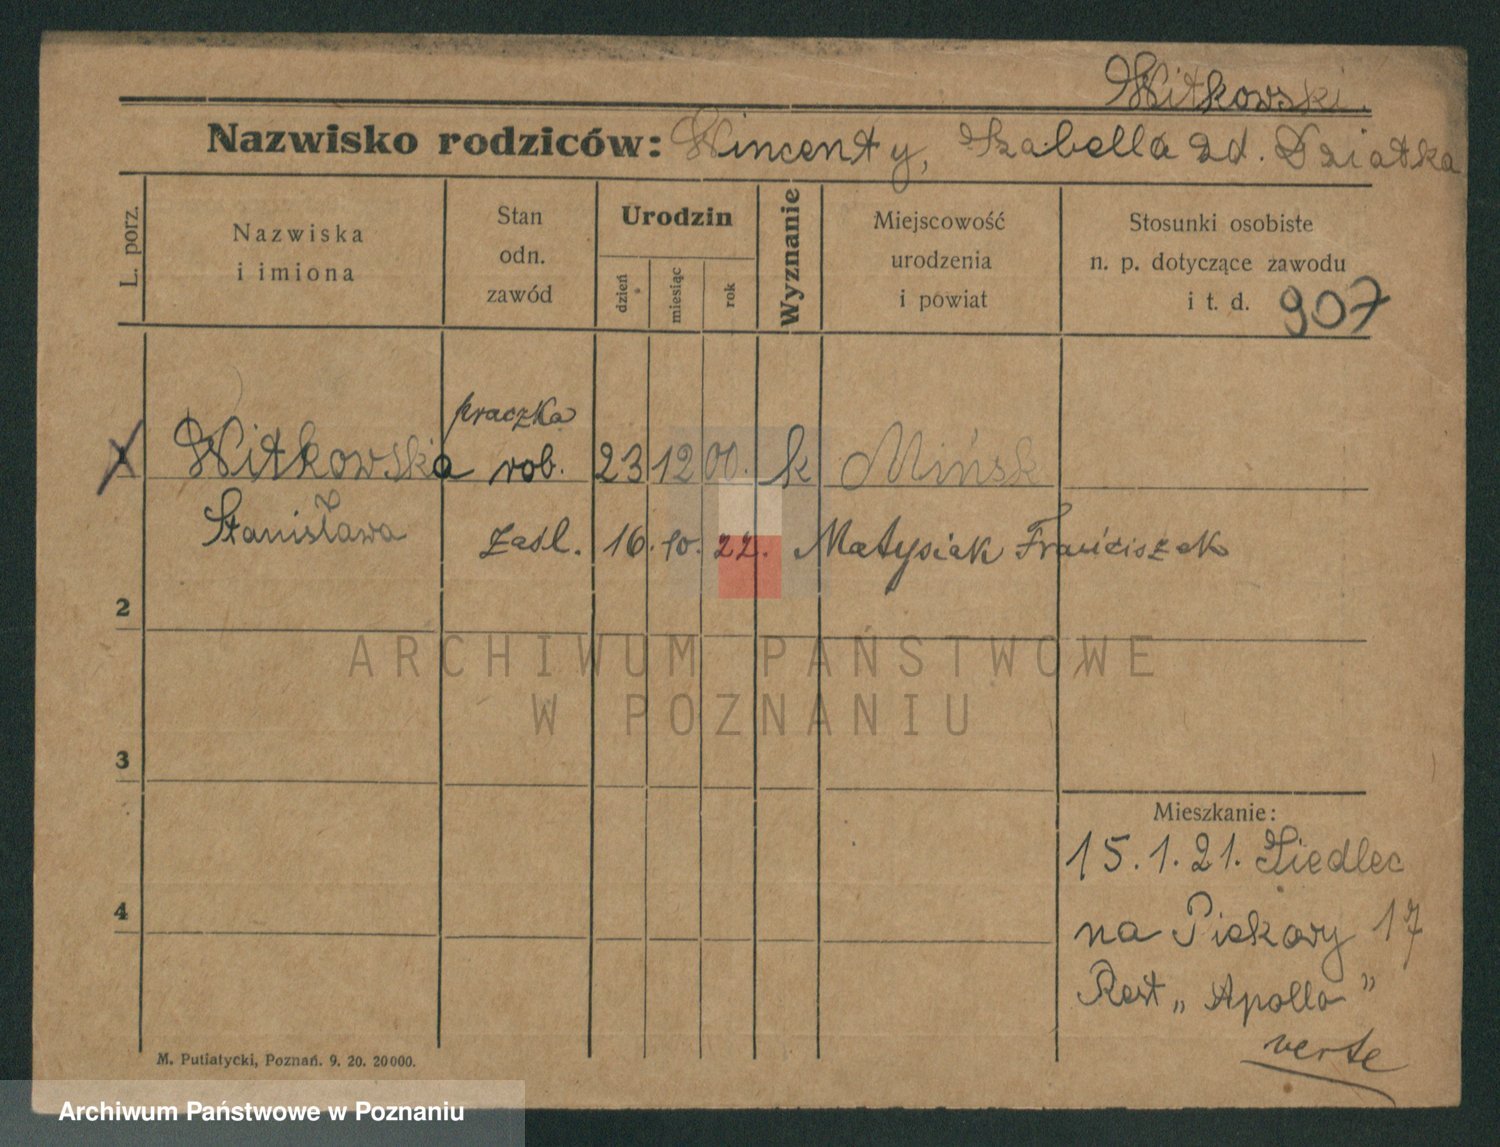 Witkowski.
Nazwisko rodziców: Wincenty, Izabella zd. Dziatka
L. porz.
Nazwiska
i imiona
Stan
odn.
zawód
Urodzin
dzień
miesiąc
rok
Wyznanie
Miejscowość
urodzenia
i powiat
Stosunki osobiste
n. p. dotyczące zawodu
i t. d. 907
praczka
Witkowska rob. 23 12 00. k Mińsk
Stanisława zaśl. 16. 10. 22. Matysiak Franciszek
2
ARCHIWUM PAŃSTWOWE
W POZNANIU
3
Mieszkanie:
15.1.21. Siedlec
4
na Piekary 17
Rest „Apollo"
verte
M. Putiatycki, Poznań. 9. 20. 20000.
Archiwum Państwowe w Poznaniu